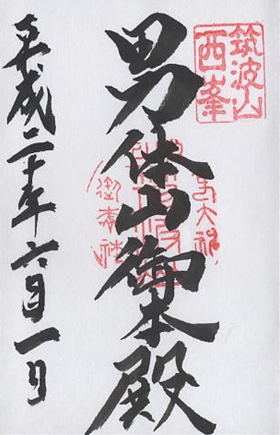 筑波山
西峯
男体山御本殿
平成二十年六月一日